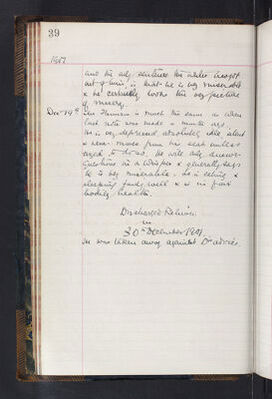 39
and the only sentence his wife brought
out of him, is that he is very miserable
& he certainly looks the very picture
of misery.
Dec 19th Mr Harrison is much the same as when
last note was made a month ago.
He is very depressed, absolutely idle, silent
& never moves from his seat unless
urged to do so. He will only answer
questions in a whisper & generally says
he is very miserable. He is eating &
sleeping fairly well & is in fair
bodily health.
Discharged Relieved
on
30th December 1901
He was taken away against Drs advice.